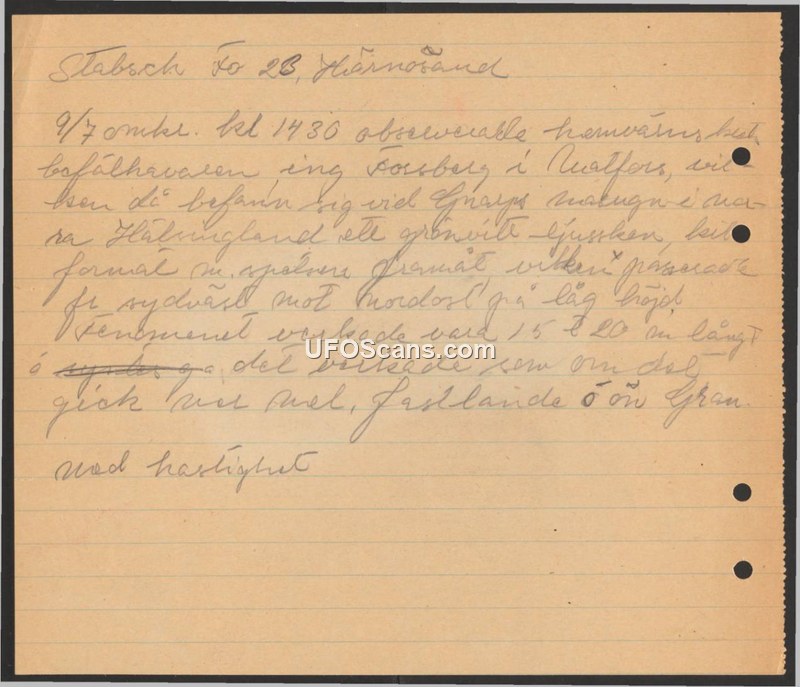 Stabsch Fo 23, Härnösand
9/7 omkr. kl 1430 observerade hemvärnskrets
befälhavaren ing Forsberg i Matfors, vil-
ken då befann sig vid Gnarps masugn i no-
ra Hälsingland ett grönvitt ljussken,
format m. spetsen framåt, vilken passerade
fr sydväst mot nordost på låg höjd
Fenomenet verkade vara 15 à 20 m långt
UFOScans.com
ó det verkade som om det
gick ner mel. fastlandet ó ön Gran.
Med hastighet